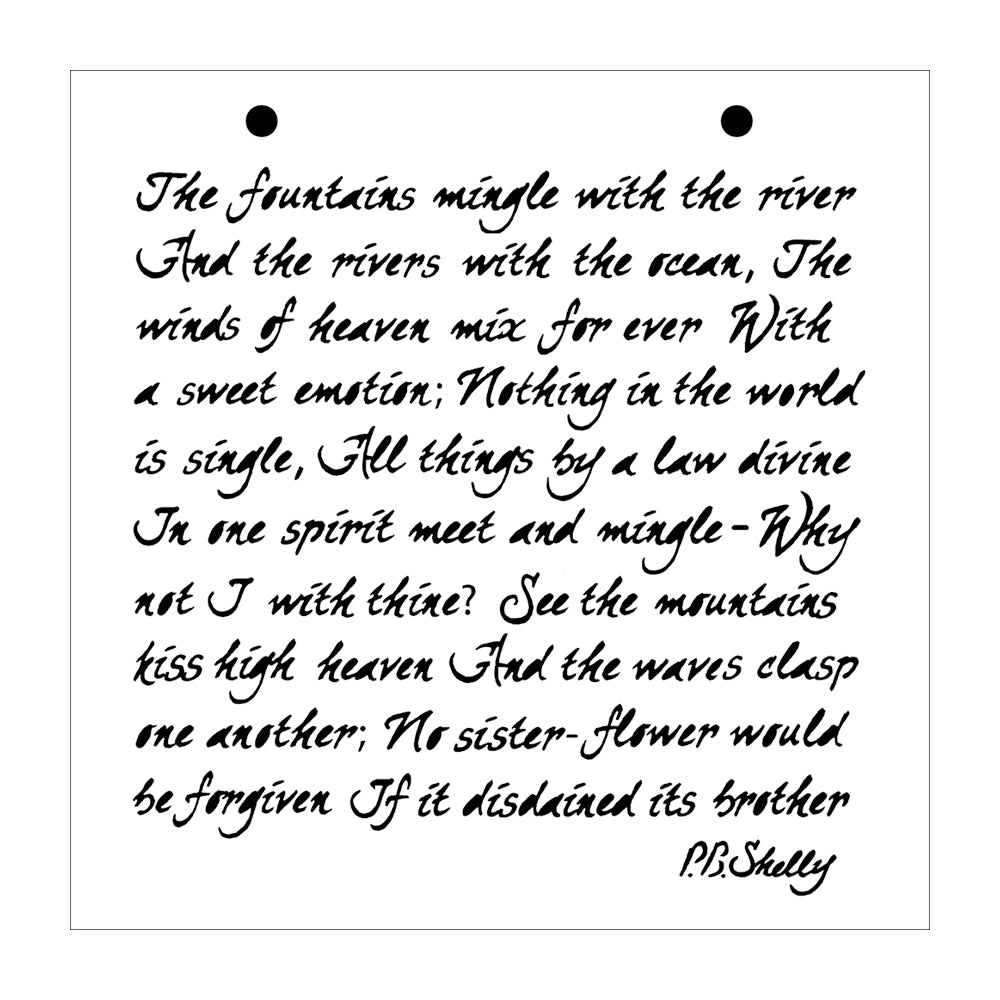 The fountains mingle with the river
And the rivers with the ocean, The
winds of heaven mix for ever With
a sweet emotion; Nothing in the world
is single, All things by a law divine
In one spirit meet and mingle - Why
not I with thine? See the mountains
kiss high heaven And the waves clasp
one another; No sister-flower would
be forgiven If it disdained its brother
P.B.Shelly